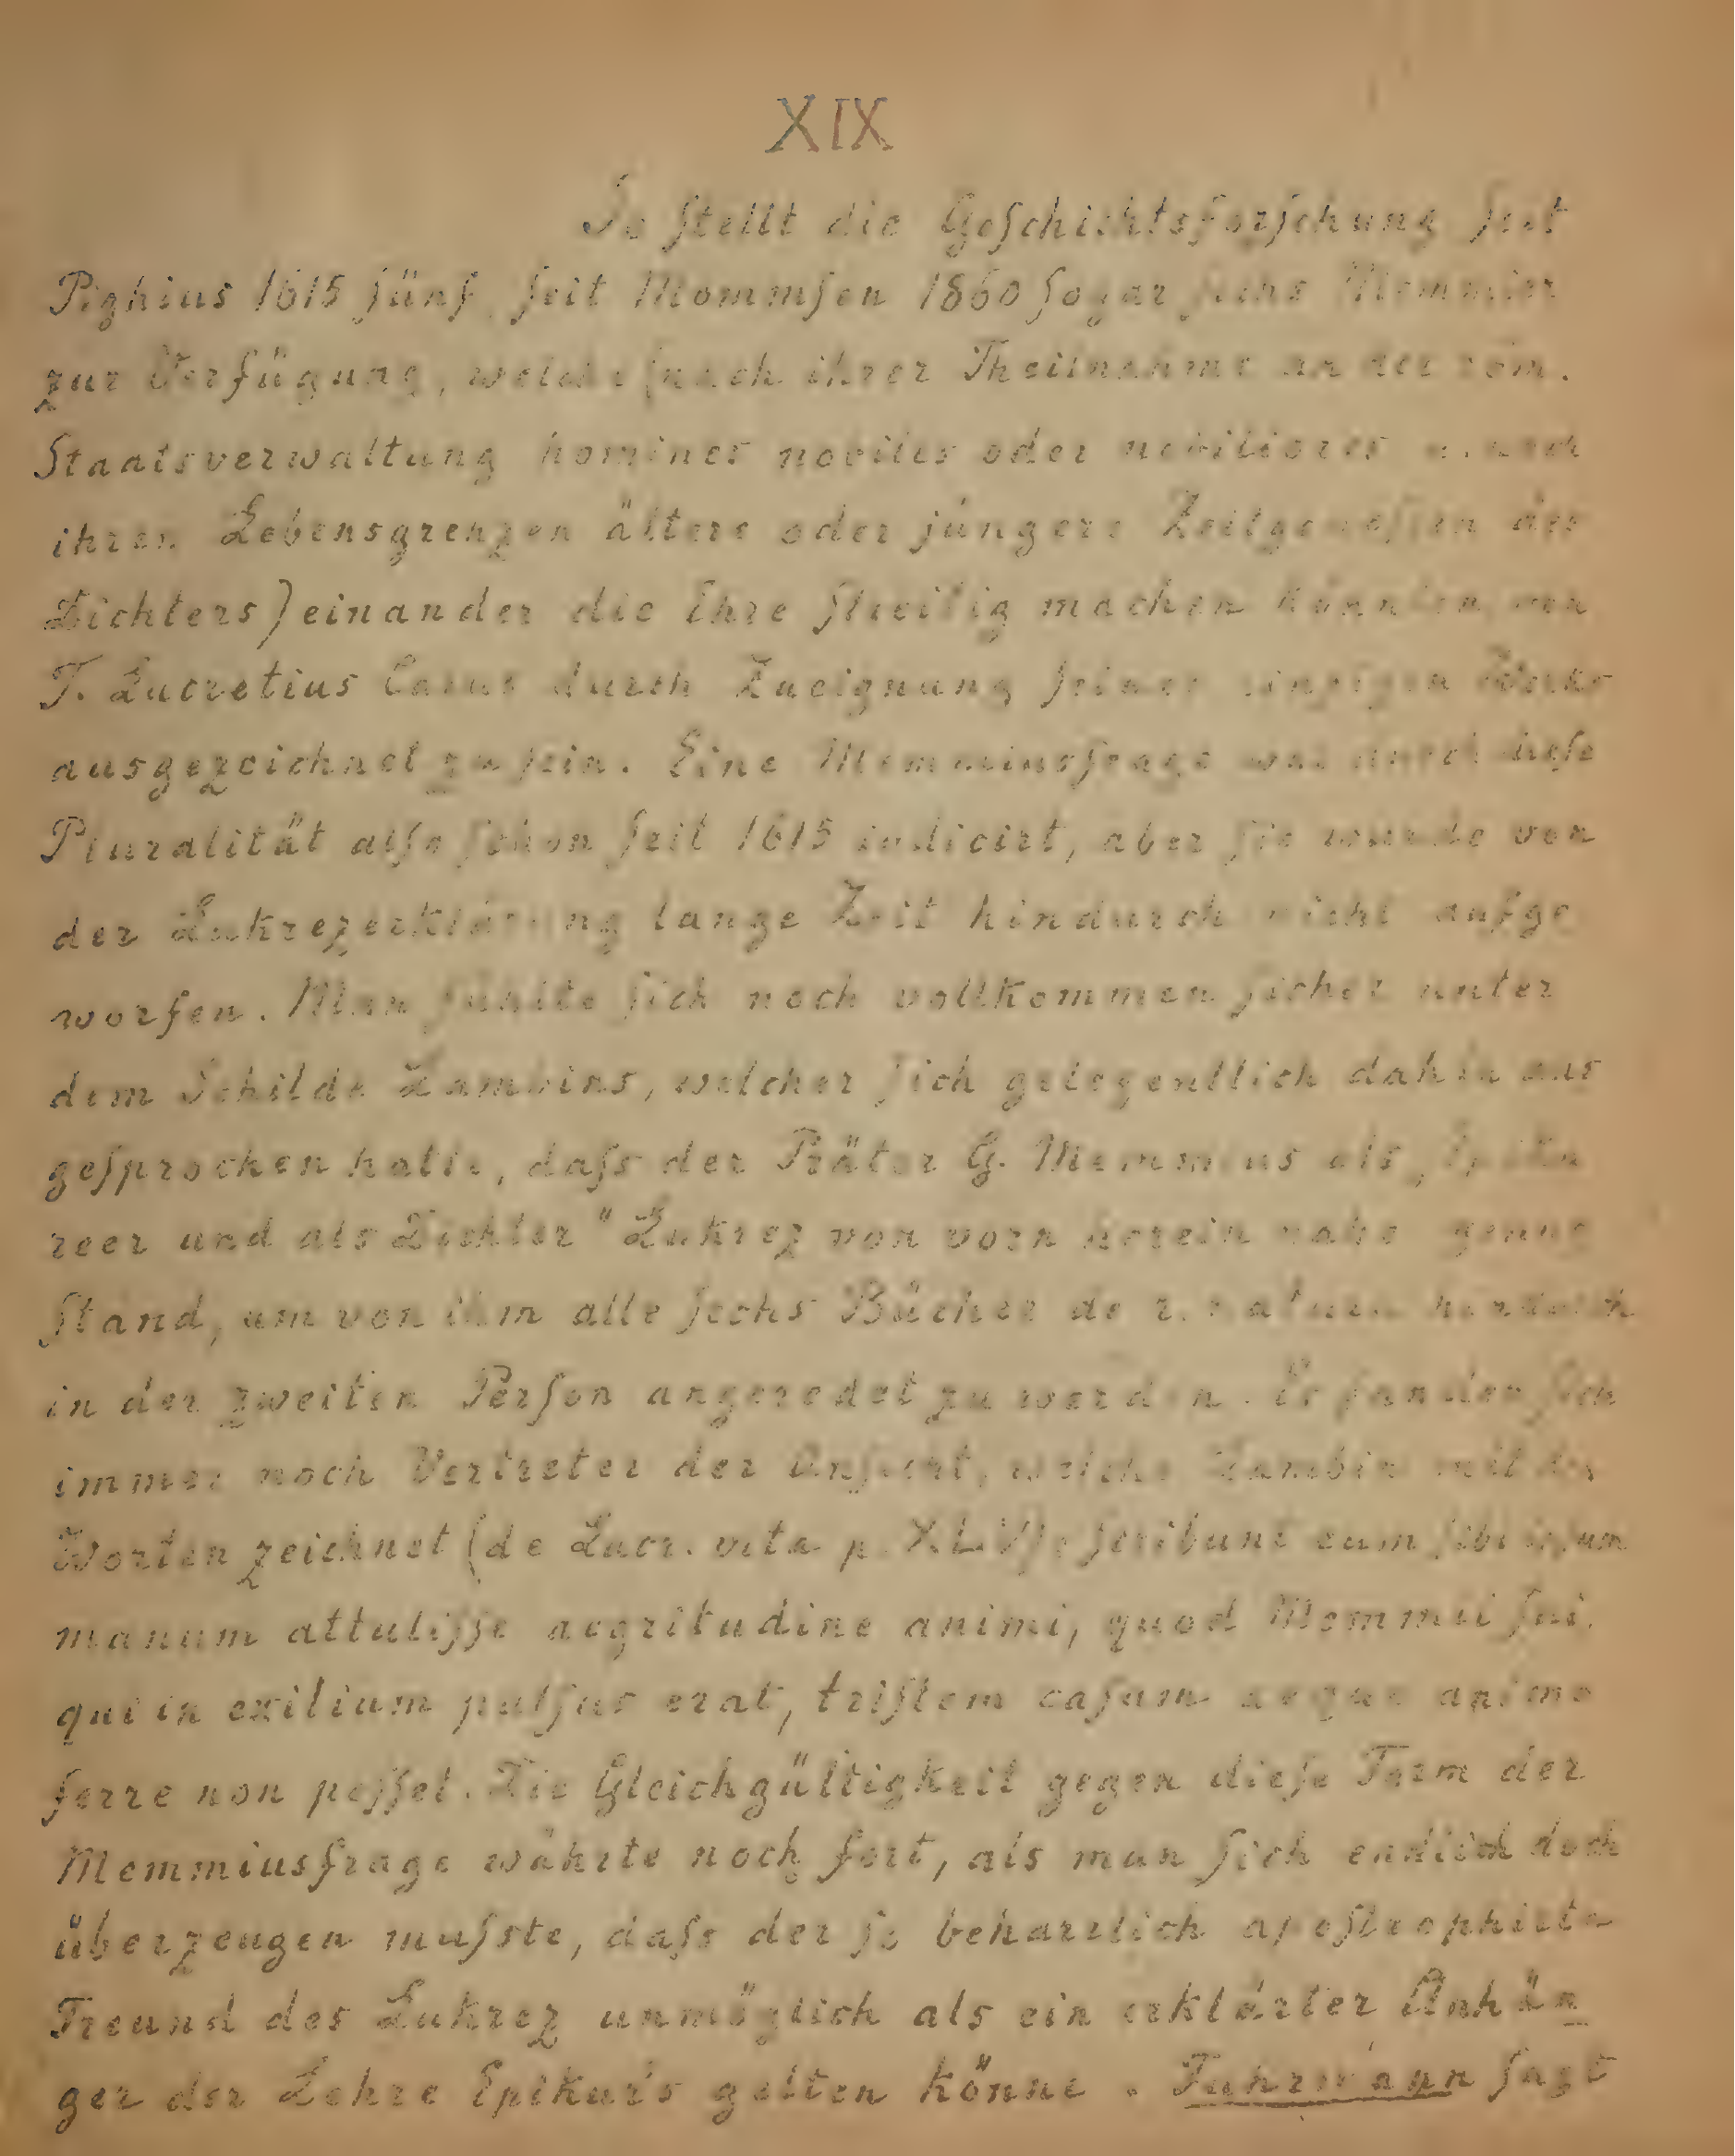 XIX
So stellt die Geschichtsforschung seit
Pighius 1615 fünf, seit Mommsen 1860 sogar sechs Memmier
zur Verfügung, welche (nach ihrer Theilnahme an der röm.
Staatsverwaltung homines nobiles oder nobiliores u. nach
ihren Lebensgrenzen ältere oder jüngere Zeitgenossen des
Dichters) einander die Ehre streitig machen könnten, von
T. Lucretius Carus durch Zueignung seines einzigen Werks
ausgezeichnet zu sein. Eine Memmiusfrage war durch diese
Pluralität also schon seit 1615 indicirt, aber sie wurde von
der Lukrezerklärung lange Zeit hindurch nicht aufge
worfen. Man fühlte sich noch vollkommen sicher unter
dem Schilde Lambins, welcher sich gelegentlich dahin aus
gesprochen hatte, dass der Prätor G. Memmius als „Epiku
reer und als Dichter" Lukrez von vorn herein nahe genug
stand, um von ihm alle sechs Bücher de r. natura hindurch
in der zweiten Person angeredet zu werden. Es fanden sich
immer noch Vertreter der Ansicht, welche Lambin mit den
Worten zeichnet (de Lucr. vita p. XLV): scribunt eum sibi ipsum
manum attulisse aegritudine animi, quod Memmii sui,
qui in exilium pulsus erat, tristem casum aequo animo
ferre non posset. Die Gleichgültigkeit gegen diese Form der
Memmiusfrage währte noch fort, als man sich endlich doch
überzeugen musste, dass der so beharrlich apostrophirte
Freund des Lukrez unmöglich als ein erklärter Anhän
ger der Lehre Epikur's gelten könne. Fuhrmann sagt